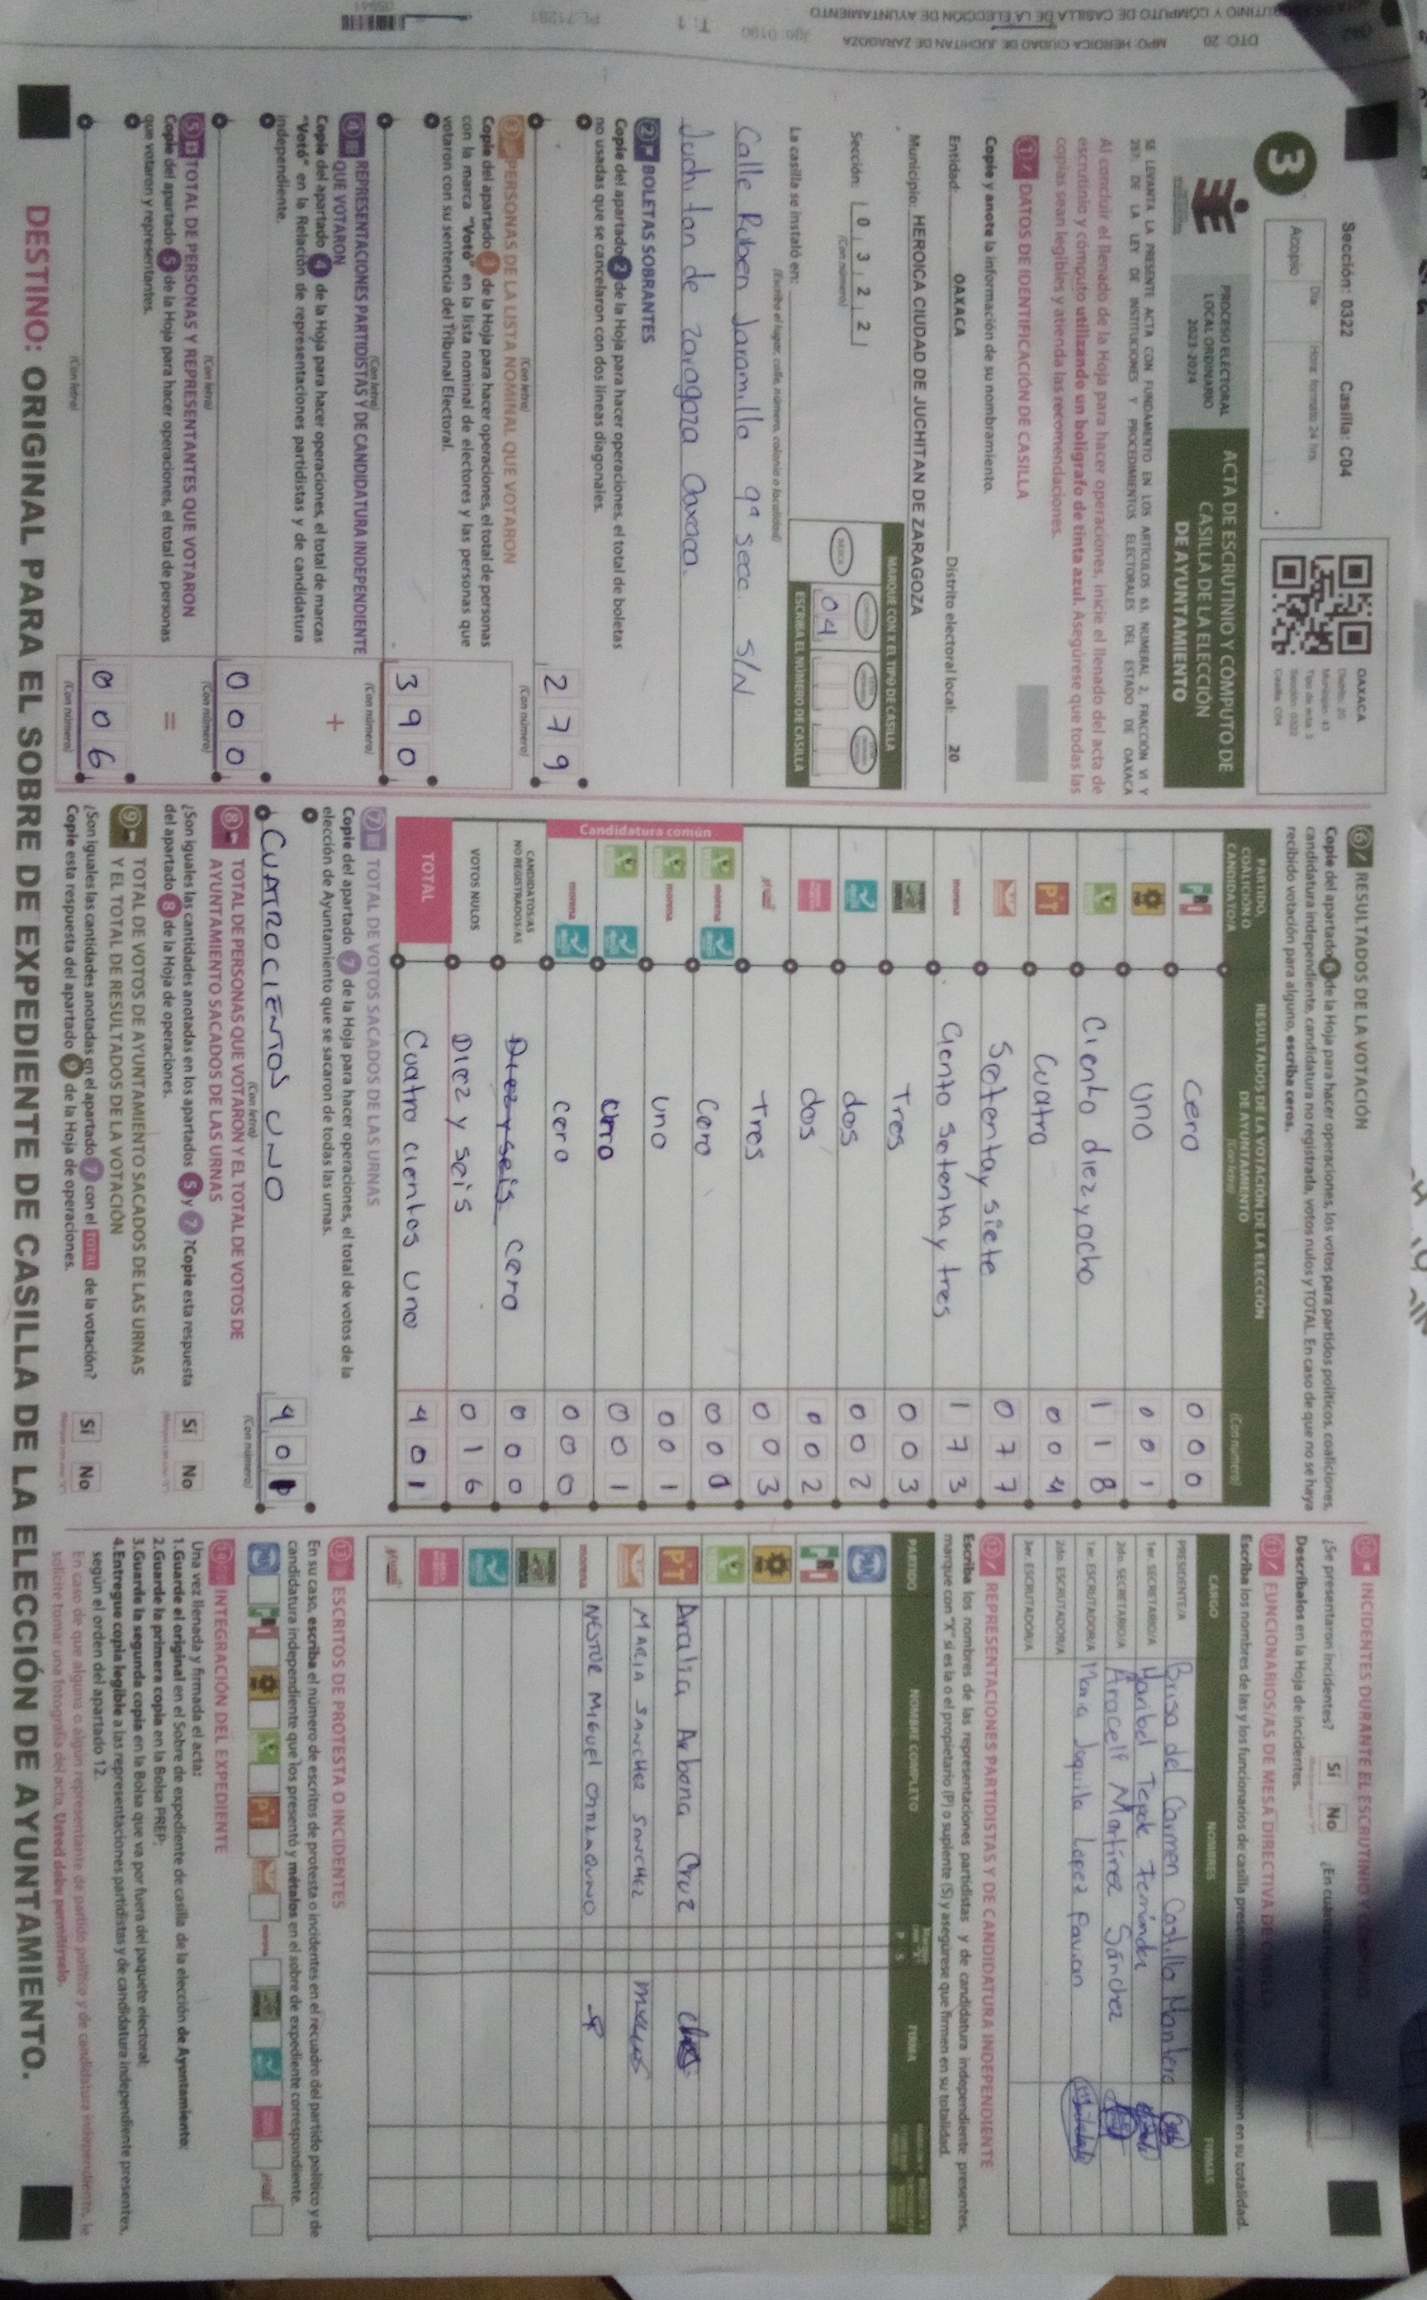 Sección: 0322 Casilla: C04
3
Acopio
Día Hora: formato 24 hrs.
OAXACA
Distrito: 20
Municipio: 43
Tipo de acta: 3
Sección: 0322
Casilla: C04
PROCESO ELECTORAL
LOCAL ORDINARIO
2023-2024
ACTA DE ESCRUTINIO Y CÓMPUTO DE
CASILLA DE LA ELECCIÓN
DE AYUNTAMIENTO
SE LEVANTA LA PRESENTE ACTA CON FUNDAMENTO EN LOS ARTÍCULOS 63, NUMERAL 2, FRACCIÓN VI Y
257, DE LA LEY DE INSTITUCIONES Y PROCEDIMIENTOS ELECTORALES DEL ESTADO DE OAXACA
Al concluir el llenado de la Hoja para hacer operaciones, inicie el llenado del acta de
escrutinio y cómputo utilizando un bolígrafo de tinta azul. Asegúrese que todas las
copias sean legibles y atienda las recomendaciones.
1 DATOS DE IDENTIFICACIÓN DE CASILLA
Copie y anote la información de su nombramiento.
Entidad: OAXACA Distrito electoral local: 20
Municipio: HEROICA CIUDAD DE JUCHITAN DE ZARAGOZA
Sección: 0 3 2 2
(Con número)
MARQUE CON X EL TIPO DE CASILLA
BÁSICA
04
ESCRIBA EL NÚMERO DE CASILLA
La casilla se instaló en:
(Escriba el lugar, calle, número, colonia o localidad)
Calle Ruben Jaramillo 9ª secc. S/N
Juchitan de Zaragoza Oaxaca.
2 BOLETAS SOBRANTES
Copie del apartado 2 de la Hoja para hacer operaciones, el total de boletas
no usadas que se cancelaron con dos líneas diagonales.
2 7 9
(Con letra) (Con número)
3 PERSONAS DE LA LISTA NOMINAL QUE VOTARON
Copie del apartado 3 de la Hoja para hacer operaciones, el total de personas
con la marca "Votó" en la lista nominal de electores y las personas que
votaron con su sentencia del Tribunal Electoral.
3 9 0
(Con letra) (Con número)
4 REPRESENTACIONES PARTIDISTAS Y DE CANDIDATURA INDEPENDIENTE
QUE VOTARON
+
Copie del apartado 4 de la Hoja para hacer operaciones, el total de marcas
"Votó" en la Relación de representaciones partidistas y de candidatura
independiente.
0 0 0
(Con letra) (Con número)
5 TOTAL DE PERSONAS Y REPRESENTANTES QUE VOTARON
=
Copie del apartado 5 de la Hoja para hacer operaciones, el total de personas
que votaron y representantes.
0 0 6
(Con letra) (Con número)
6 RESULTADOS DE LA VOTACIÓN
Copie del apartado 6 de la Hoja para hacer operaciones, los votos para partidos políticos, coaliciones,
candidatura independiente, candidatura no registrada, votos nulos y TOTAL. En caso de que no se haya
recibido votación para alguno, escriba ceros.
PARTIDO, COALICIÓN O CANDIDATO/A RESULTADOS DE LA VOTACIÓN DE LA ELECCIÓN DE AYUNTAMIENTO
(Con letra) (Con número)
PRI Cero 0 0 0
Uno 0 0 1
Ciento diez y ocho 1 1 8
PT Cuatro 0 0 4
Setenta y siete 0 7 7
morena Ciento setenta y tres 1 7 3
Tres 0 0 3
dos 0 0 2
dos 0 0 2
Tres 0 0 3
Candidatura común
morena Cero 0 0 0
morena uno 0 0 1
0 0 1
morena cero 0 0 0
CANDIDATOS/AS NO REGISTRADOS/AS Diez y seis cero 0 0 0
VOTOS NULOS Diez y seis 0 1 6
TOTAL Cuatro cientos uno 4 0 1
7 TOTAL DE VOTOS SACADOS DE LAS URNAS
Copie del apartado 7 de la Hoja para hacer operaciones, el total de votos de la
elección de Ayuntamiento que se sacaron de todas las urnas.
CUATROCIENTOS UNO 4 0 1
(Con letra) (Con número)
8 TOTAL DE PERSONAS QUE VOTARON Y EL TOTAL DE VOTOS DE
AYUNTAMIENTO SACADOS DE LAS URNAS
¿Son iguales las cantidades anotadas en los apartados 5 y 7 ? Copie esta respuesta
del apartado 8 de la Hoja de operaciones.
Sí No
9 TOTAL DE VOTOS DE AYUNTAMIENTO SACADOS DE LAS URNAS
Y EL TOTAL DE RESULTADOS DE LA VOTACIÓN
¿Son iguales las cantidades anotadas en el apartado 7 con el TOTAL de la votación?
Copie esta respuesta del apartado 9 de la Hoja de operaciones.
Sí No
10 INCIDENTES DURANTE EL ESCRUTINIO Y
¿Se presentaron incidentes? Sí No ¿En
Descríbalos en la Hoja de incidentes.
11 FUNCIONARIOS/AS DE MESA DIRECTIVA DE
Escriba los nombres de las y los funcionarios de casilla presentes y firmen en su totalidad.
CARGO NOMBRES FIRMAS
PRESIDENTE/A Brisa del Carmen Castillo Montero
1er. SECRETARIO/A Maribel Tepole Fernández
2do. SECRETARIO/A Araceli Martínez Sánchez
1er. ESCRUTADOR/A Maria Joquila Lopez
2do. ESCRUTADOR/A
3er. ESCRUTADOR/A
12 REPRESENTACIONES PARTIDISTAS Y DE CANDIDATURA INDEPENDIENTE
Escriba los nombres de las representaciones partidistas y de candidatura independiente presentes,
marque con "X" si es la o el propietario (P) o suplente (S) y asegúrese que firmen en su totalidad.
PARTIDO NOMBRE COMPLETO P S FIRMA
PAN
PRI
PT Aralia Arbona Cruz
MARIA SANCHEZ SANCHEZ
morena NESTOR MIGUEL
13 ESCRITOS DE PROTESTA O INCIDENTES
En su caso, escriba el número de escritos de protesta o incidentes en el recuadro del partido político y de
candidatura independiente que los presentó y métalos en el sobre de expediente correspondiente.
14 INTEGRACIÓN DEL EXPEDIENTE
Una vez llenada y firmada el acta:
1.Guarde el original en el Sobre de expediente de casilla de la elección de Ayuntamiento;
2.Guarde la primera copia en la Bolsa PREP;
3.Guarde la segunda copia en la Bolsa que va por fuera del paquete electoral;
4.Entregue copia legible a las representaciones partidistas y de candidatura independiente presentes,
según el orden del apartado 12.
En caso de que alguna o algún representante de partido político y de candidatura independiente, le
solicite tomar una fotografía del acta, Usted debe permitírselo.
DESTINO: ORIGINAL PARA EL SOBRE DE EXPEDIENTE DE CASILLA DE LA ELECCIÓN DE AYUNTAMIENTO.
DTO: 20 MPO: HEROICA CIUDAD DE JUCHITAN DE ZARAGOZA
ESCRUTINIO Y CÓMPUTO DE CASILLA DE LA ELECCIÓN DE AYUNTAMIENTO